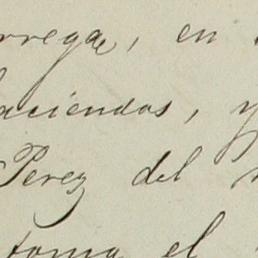 rregae, en
haciendas, y
Perez del
toma el